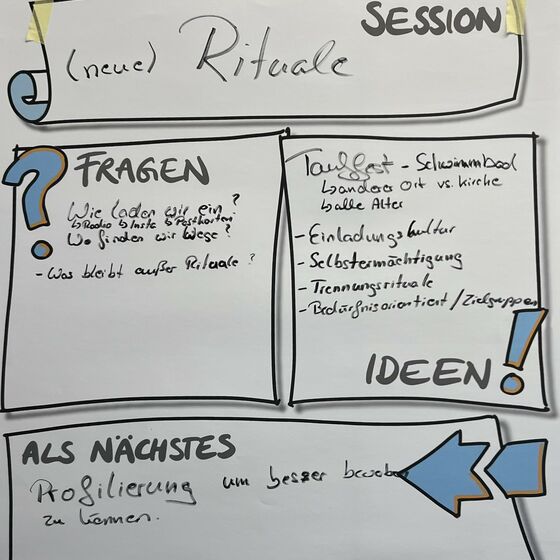 SESSION
(neue) Rituale
FRAGEN
Wie laden wir ein?
↳Radio ↳Insta ↳Postkarten
Wo finden wir Wege?
- Was bleibt außer Rituale?
Tauffest - Schwimmbad
↳anderer Ort vs. Kirche
↳alle Alter
- Einladungskultur
- Selbstermächtigung
- Trennungsrituale
- Bedürfnisorientiert / Zielgruppen
IDEEN
ALS NÄCHSTES
Profilierung um besser
zu können.